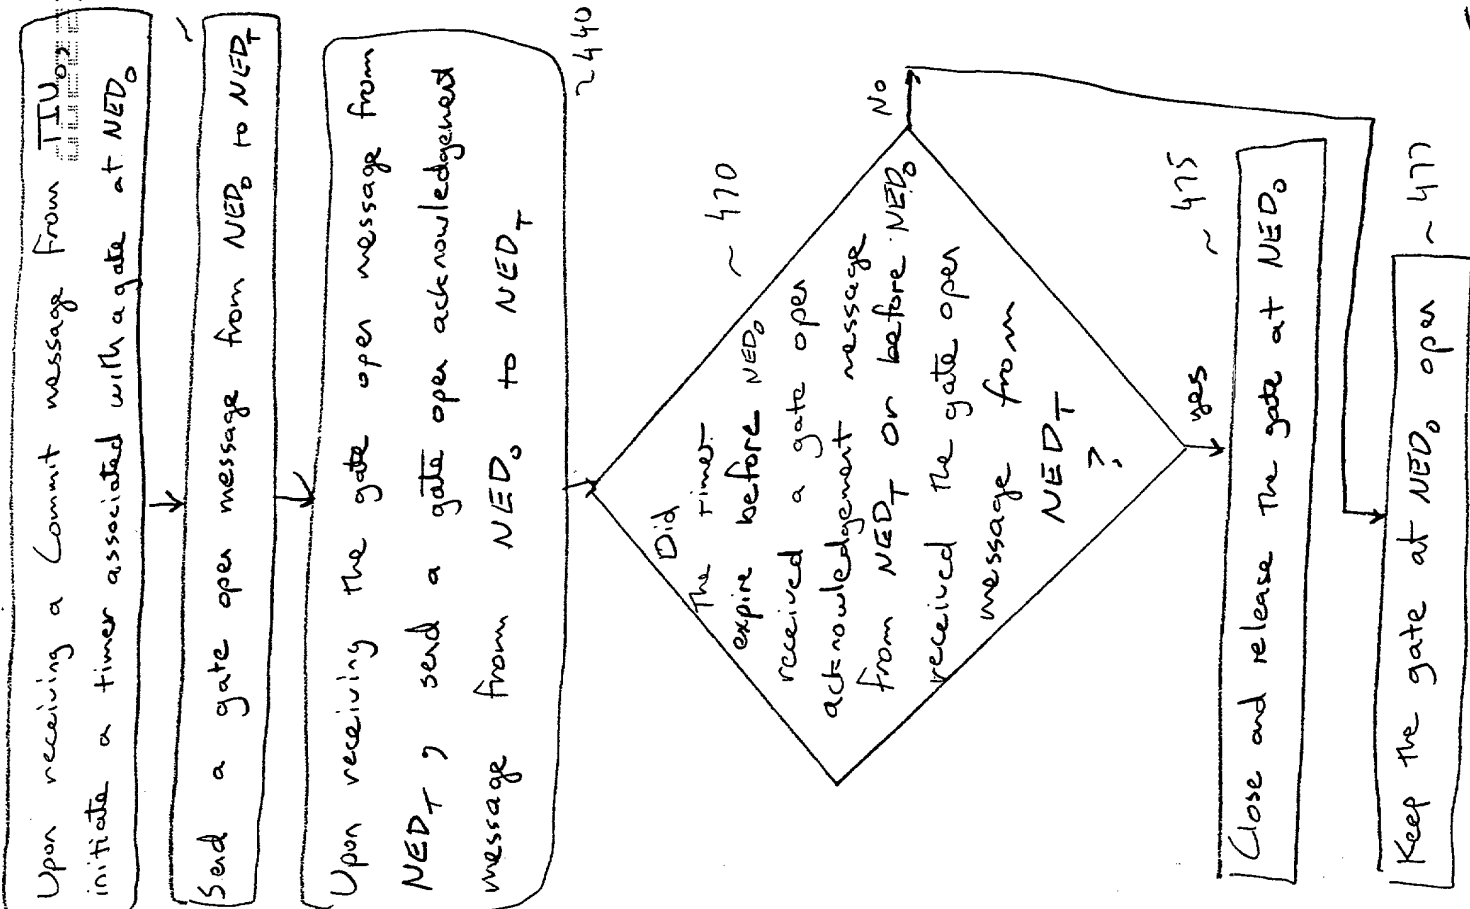 Upon receiving a Commit message from TIU₀,
initiate a timer associated with a gate at NED₀
Send a gate open message from NED₀ to NED_T
Upon receiving the gate open message from
NED_T, send a gate open acknowledgement
message from NED₀ to NED_T
~440
Did
the timer
expire before NED₀
received a gate open
acknowledgement message
from NED_T or before NED₀
received the gate open
message from
NED_T
?
~ 470
No
yes
~ 475
Close and release the gate at NED₀
Keep the gate at NED₀ open
~ 477